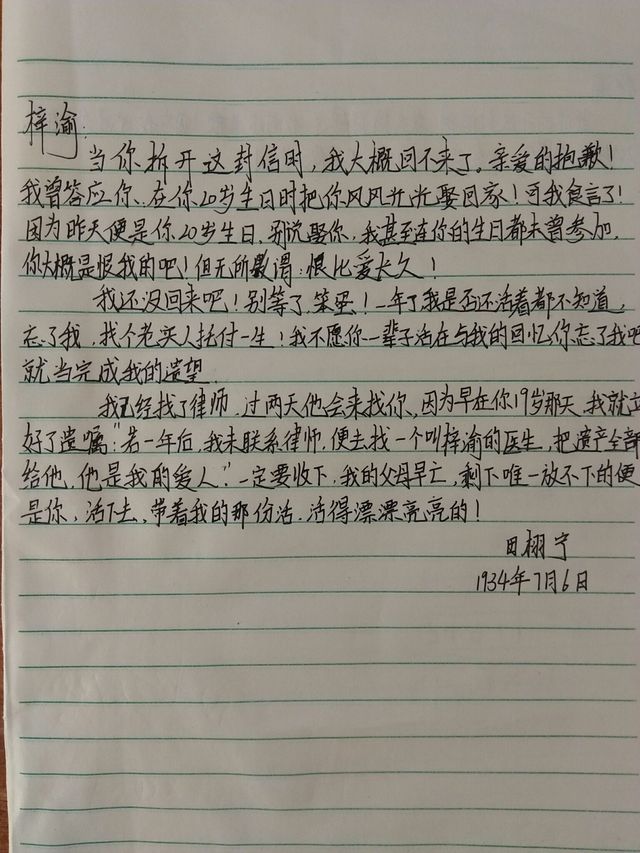 梓渝:
当你拆开这封信时，我大概回不来了。亲爱的抱歉！
我曾答应你、在你20岁生日时把你风风光光娶回家！可我食言了！
因为昨天便是你20岁生日、别说娶你，我甚至连你的生日都未曾参加，
你大概是恨我的吧！但无所谓：恨比爱长久！
我还没回来吧！别等了笨蛋！一年了我是否还活着都不知道，
忘了我，找个老实人托付一生！我不愿你一辈子活在与我的回忆，你忘了我吧
就当完成我的遗望。
我已经找了律师，过两天他会来找你、因为早在你19岁那天、我就立
好了遗嘱："若一年后，我未联系律师，便去找一个叫梓渝的医生，把遗产全部
给他，他是我的爱人。"一定要收下，我的父母早亡，剩下唯一放不下的便
是你，活下去、带着我的那份活、活得漂漂亮亮的！
田栩宁
1934年7月6日